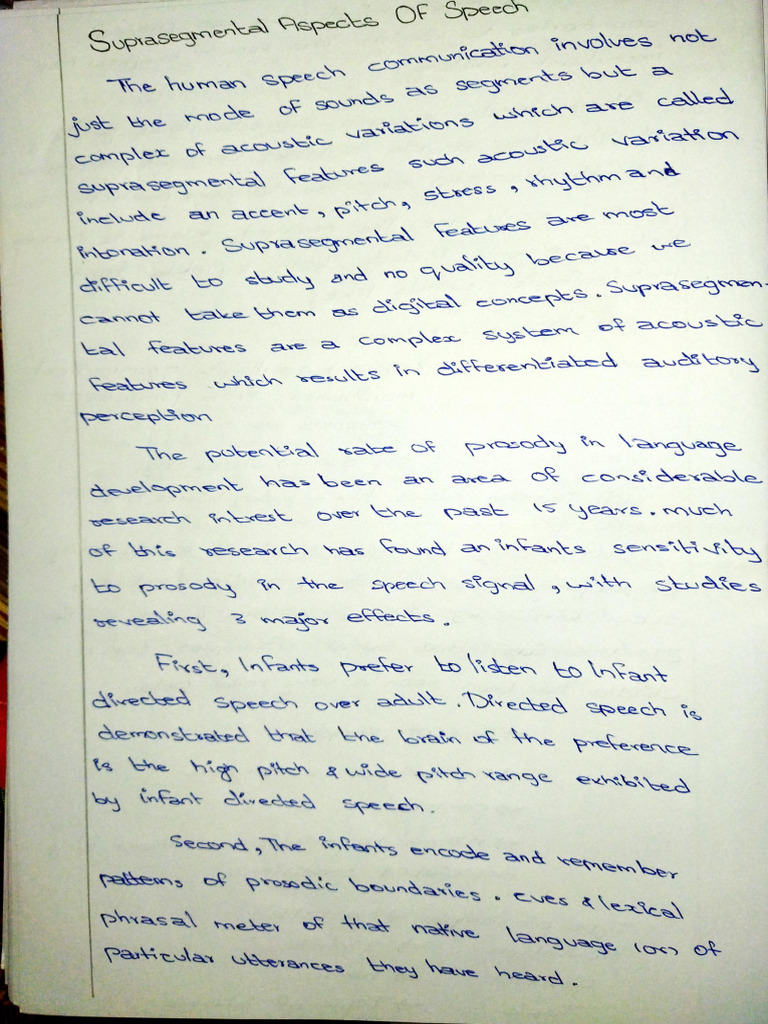 Suprasegmental Aspects Of Speech
The human speech communication involves not
just the mode of sounds as segments but a
complex of acoustic variations which are called
suprasegmental features such acoustic variation
include an accent, pitch, stress, rhythm and
intonation. Suprasegmental features are most
difficult to study and no quality because we
cannot take them as digital concepts. Suprasegmen-
tal features are a complex system of acoustic
features which results in differentiated auditory
perception
The potential rate of prosody in language
development has been an area of considerable
research intrest over the past 15 years. Much
of this research has found an infants sensitivity
to prosody in the speech signal, with studies
revealing 3 major effects.
First, Infants prefer to listen to Infant
directed speech over adult. Directed speech is
demonstrated that the brain of the preference
is the high pitch & wide pitch range exhibited
by infant directed speech.
Second, The infants encode and remember
patterns of prosodic boundaries. cues & lexical
phrasal meter of that native language (or) of
particular utterances they have heard.